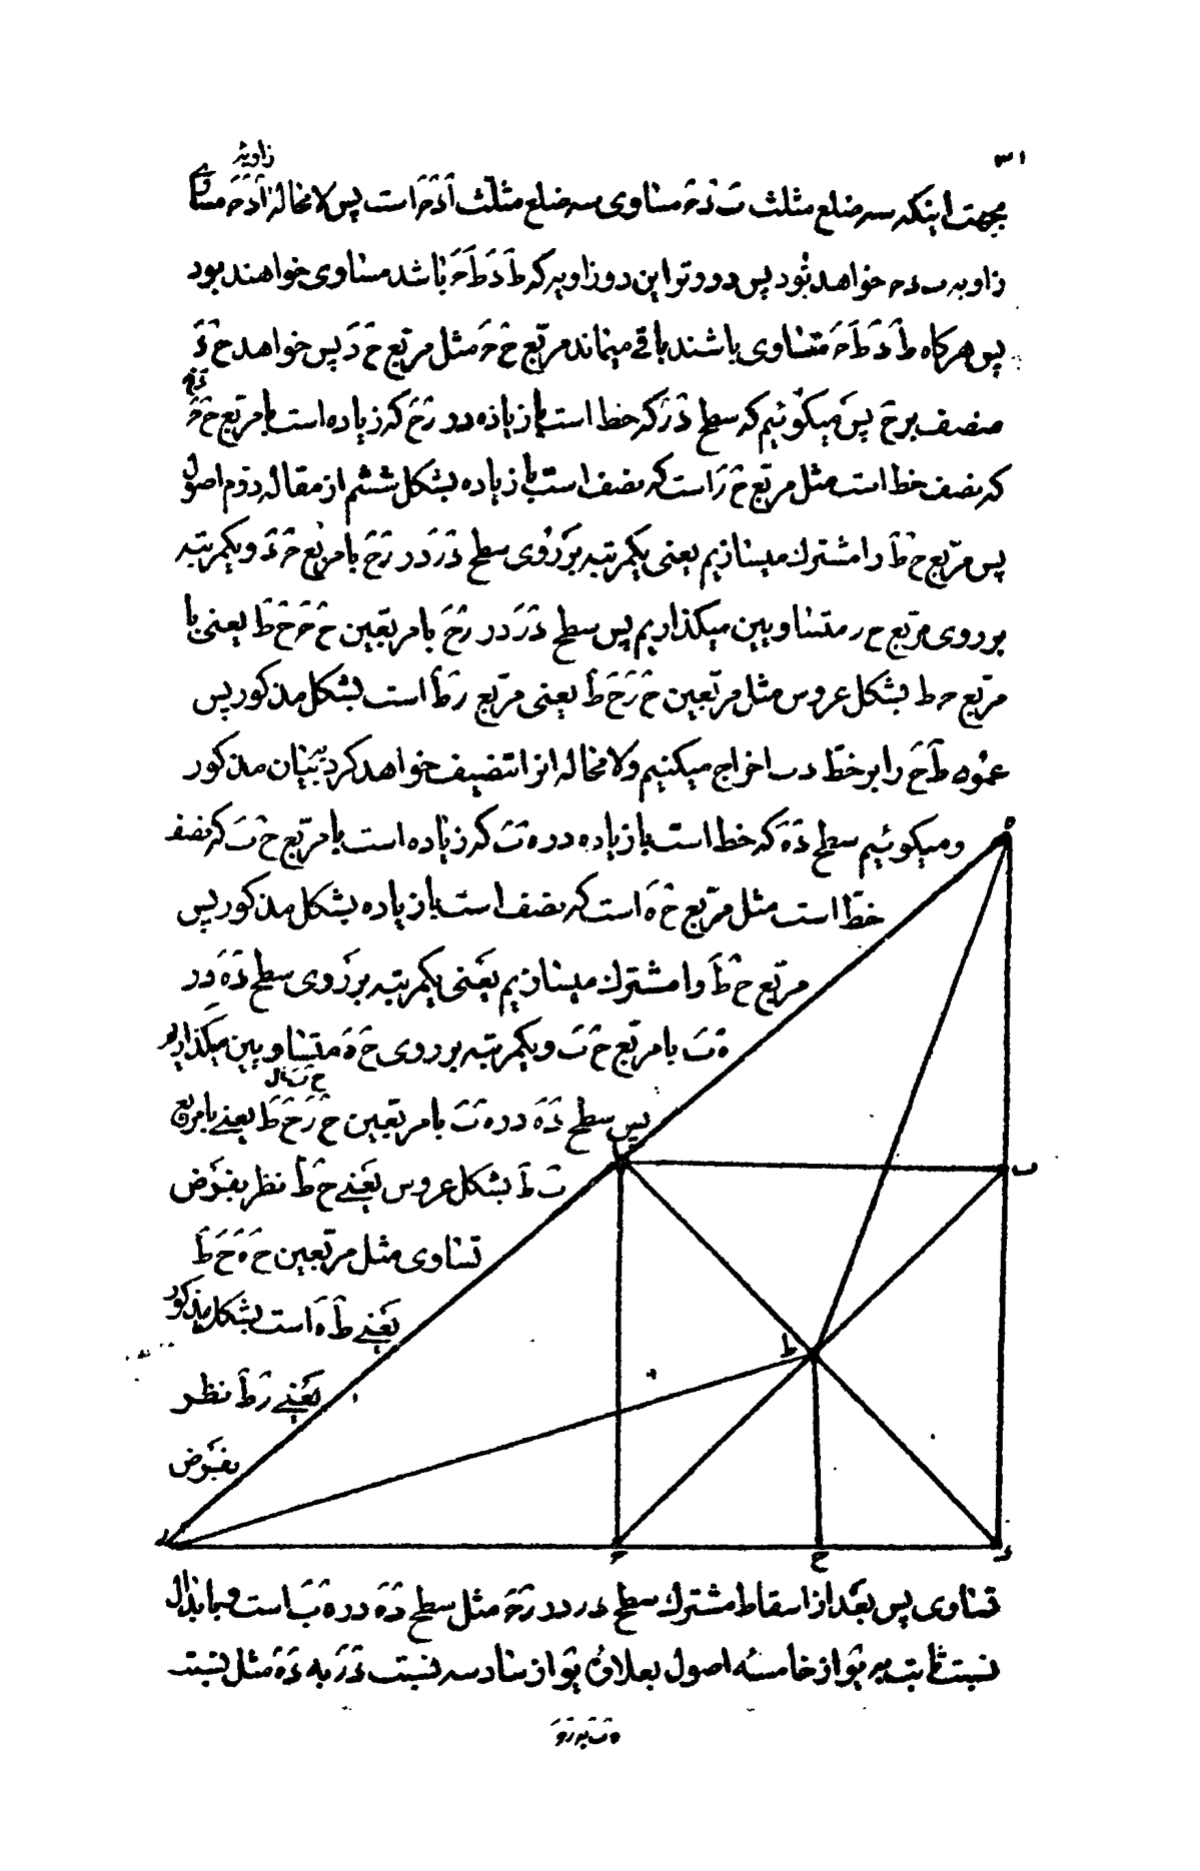 ۳۱
زاویه
بجهت اینکه سه ضلع مثلث بَ دَ حَ مساوی سه ضلع مثلث اَ دَ حَ است پس لامحاله اَ دَ حَ مساوی
زاویه ب د ح خواهد بود پس دو وتر این دو زاویه که طَ دَ طَ حَ باشد مساوی خواهند بود
پس هرگاه طَ دَ طَ حَ متساوی باشند باقی میماند مربّع حَ حَ مثل مربّع حَ دَ پس خواهد حَ دَ
منصف بر حَ پس میگوئیم که سطح دَ رَ که خطا است با زیاده در رَ حَ که زیاده است با مربّع حَ حَ
که نصف خط است مثل مربّع حَ رَ است که نصف است با زیاده بشکل ششم از مقاله دوم اصول
پس مربّع حَ طَ را مشترك میسازیم یعنی یکمرتبه بر روی سطح دَ رَ در رَ حَ با مربّع حَ دَ و یکمرتبه
بر روی مربّع ح ر متساویین میگذاریم پس سطح دَ رَ در رَ حَ با مربّعین حَ حَ حَ طَ یعنی با
مربّع ح ط بشکل عروس مثل مربّعین حَ رَ حَ طَ یعنی مربّع رَ طَ است بشکل مذکور پس
عمود طَ حَ را بر خطّ د ب اخراج میکنیم و لامحاله انرا تنصیف خواهد کرد ببیان مذکور
و میگوئیم سطح دَ هَ که خط است با زیاده در ه بَ که زیاده است با مربّع حَ بَ که نصف
خطّ است مثل مربّع حَ هَ است که نصف است با زیاده بشکل مذکور پس
مربّع حَ طَ را مشترك میسازیم یعنی یکمرتبه بر روی سطح دَ هَ در
هَ بَ با مربّع حَ بَ و یکمرتبه بر روی حَ هَ متساویین میگذاریم
پس سطح دَ هَ در ه بَ با مربّعین حَ رَ حَ طَ یعنی با مربّع
بَ طَ بشکل عروس یعنی حَ طَ نظر بفرض
تساوی مثل مربّعین حَ هَ حَ طَ
یعنی طَ ه است بشکل مذکور
یعنی رَ طَ نظر
بفرض
ه
ا
ب
ط
ر
ح
ح
د
تساوی پس بعد از اسقاط مشترك سطح د ر در رَ حَ مثل سطح دَ هَ در ه بَ است
نسبت ثابته به از خامسه اصول نسبت دَ رَ به دَ هَ مثل نسبت
ه بَ به رَ حَ